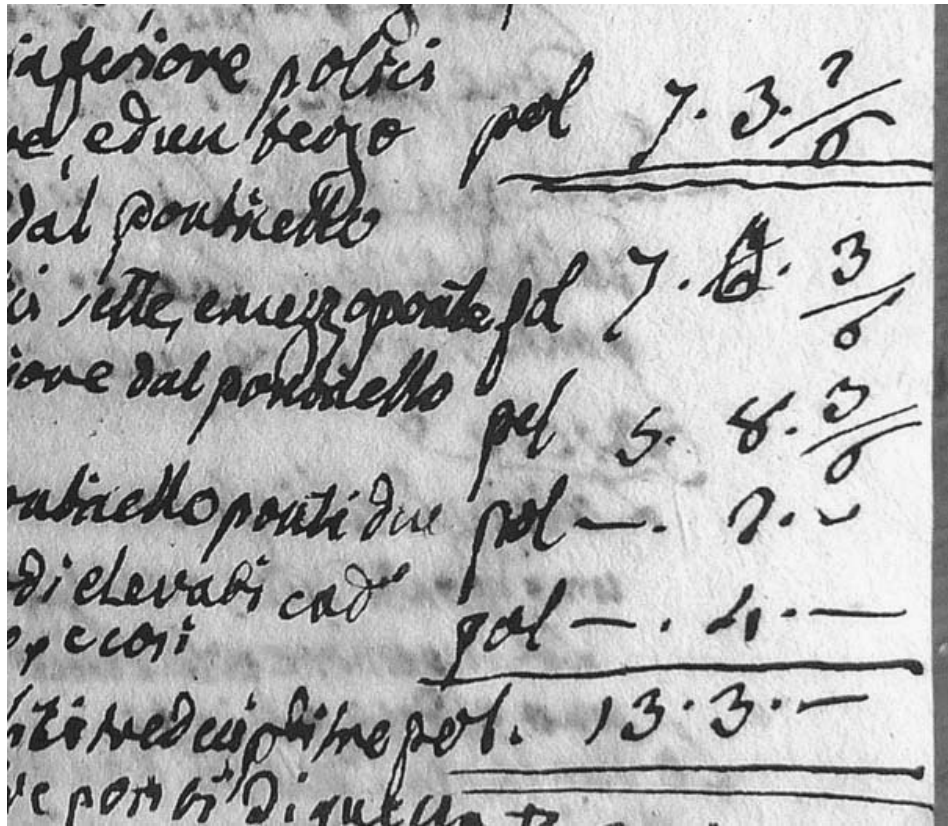 inferiore polici
ve, ed un terzo pol 7. 3. 2/6
dal ponticello
ci sette, e mezzo ponto pol 7. 3/6
iore dal ponticello pol 5. 8. 3/6
onticello ponti due pol —. 2. —
di elevati cad
e, e così pol —. 4. —
tredici ponti tre pol. 13. 3. —
ponti di quella